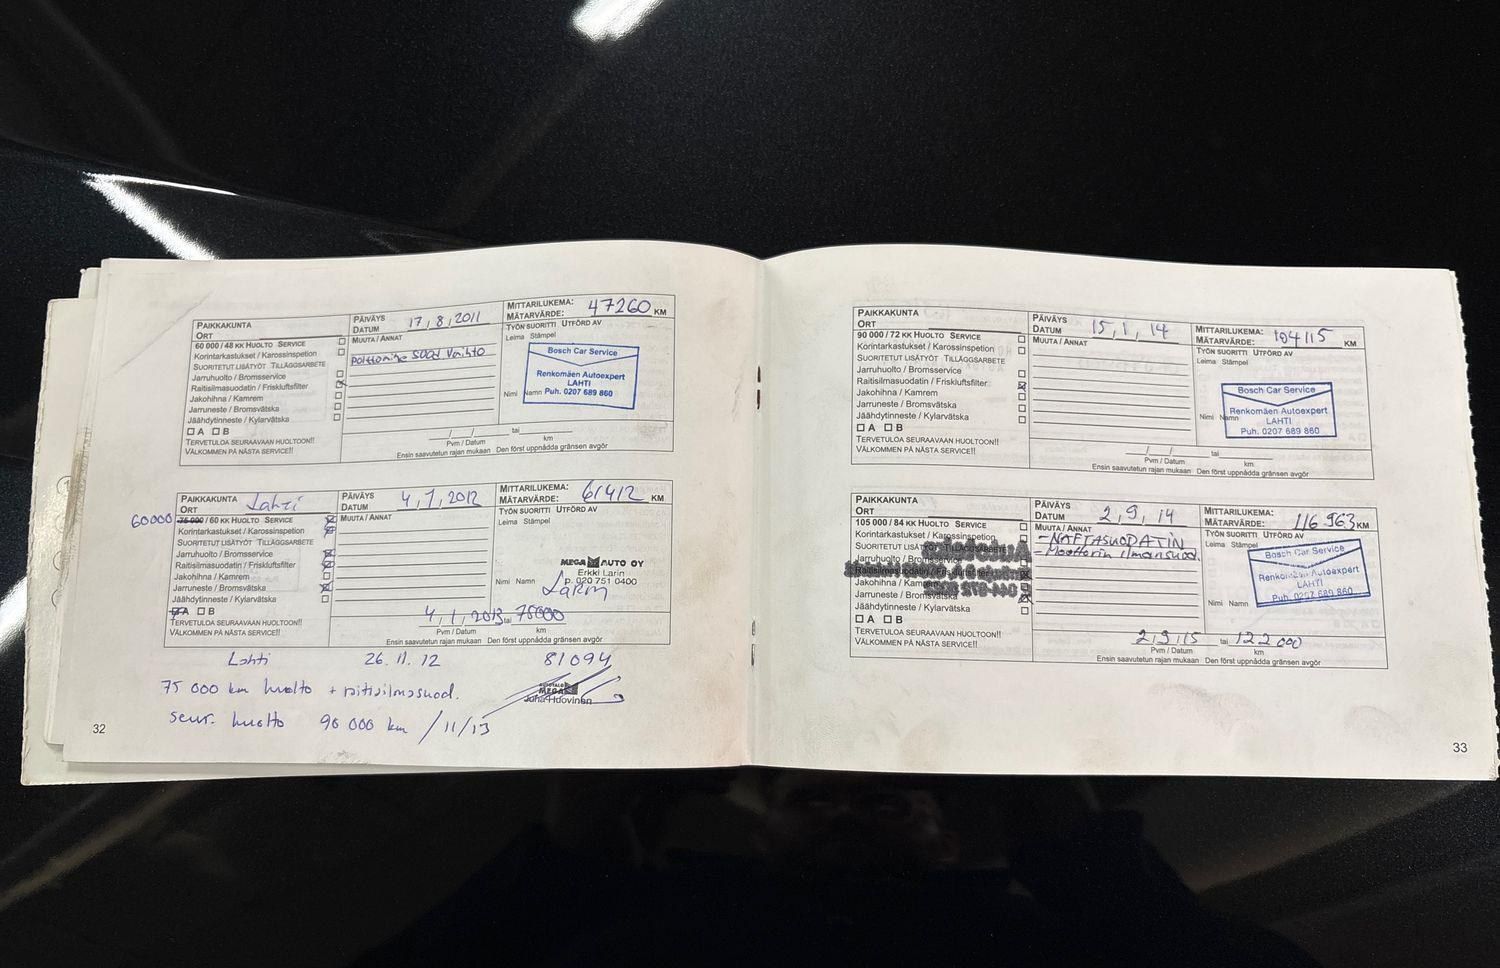 PAIKKAKUNTA
ORT
PÄIVÄYS
DATUM 17,8,2011
MITTARILUKEMA:
MÄTARVÄRDE: 47260 KM
60 000 / 48 KK HUOLTO SERVICE
Korintarkastukset / Karossinspetion
SUORITETUT LISÄTYÖT TILLÄGGSARBETE
Jarruhuolto / Bromsservice
Raitisilmasuodatin / Friskluftsfilter
Jakohihna / Kamrem
Jarruneste / Bromsvätska
Jäähdytinneste / Kylarvätska
A B
TERVETULOA SEURAAVAAN HUOLTOON!!
VÄLKOMMEN PÅ NÄSTA SERVICE!!
MUUTA / ANNAT
polttoaine suod vaihto
TYÖN SUORITTI UTFÖRD AV
Leima Stämpel
Bosch Car Service
Renkomäen Autoexpert
LAHTI
Puh. 0207 689 860
Nimi Namn
/ / tai
Pvm / Datum km
Ensin saavutetun rajan mukaan Den först uppnådda gränsen avgör
PAIKKAKUNTA
ORT Lahti
PÄIVÄYS
DATUM 4,7,2012
MITTARILUKEMA:
MÄTARVÄRDE: 61412 KM
60000 75 000 / 60 KK HUOLTO SERVICE
Korintarkastukset / Karossinspetion
SUORITETUT LISÄTYÖT TILLÄGGSARBETE
Jarruhuolto / Bromsservice
Raitisilmasuodatin / Friskluftsfilter
Jakohihna / Kamrem
Jarruneste / Bromsvätska
Jäähdytinneste / Kylarvätska
A B
TERVETULOA SEURAAVAAN HUOLTOON!!
VÄLKOMMEN PÅ NÄSTA SERVICE!!
MUUTA / ANNAT
TYÖN SUORITTI UTFÖRD AV
Leima Stämpel
MEGA AUTO OY
Erkki Larin
p. 020 751 0400
Nimi Namn Larin
4,1,2013 tai 75000
Pvm / Datum km
Ensin saavutetun rajan mukaan Den först uppnådda gränsen avgör
Lahti 26.11.12 81094
75 000 km huolto + raitisilmasuod.
AUTOTALO
MEGA
Juha Huovinen
seur. huolto 90 000 km / 11/13
32
PAIKKAKUNTA
ORT
PÄIVÄYS
DATUM 15,1,14
MITTARILUKEMA:
MÄTARVÄRDE: 104115 KM
90 000 / 72 KK HUOLTO SERVICE
Korintarkastukset / Karossinspetion
SUORITETUT LISÄTYÖT TILLÄGGSARBETE
Jarruhuolto / Bromsservice
Raitisilmasuodatin / Friskluftsfilter
Jakohihna / Kamrem
Jarruneste / Bromsvätska
Jäähdytinneste / Kylarvätska
A B
TERVETULOA SEURAAVAAN HUOLTOON!!
VÄLKOMMEN PÅ NÄSTA SERVICE!!
MUUTA / ANNAT
TYÖN SUORITTI UTFÖRD AV
Leima Stämpel
Bosch Car Service
Renkomäen Autoexpert
LAHTI
Puh. 0207 689 860
Nimi Namn
/ / tai
Pvm / Datum km
Ensin saavutetun rajan mukaan Den först uppnådda gränsen avgör
PAIKKAKUNTA
ORT
PÄIVÄYS
DATUM 2,9,14
MITTARILUKEMA:
MÄTARVÄRDE: 116 963 KM
105 000 / 84 KK HUOLTO SERVICE
Korintarkastukset / Karossinspetion
SUORITETUT LISÄTYÖT TILLÄGGSARBETE
Jarruhuolto / Bromsservice
Raitisilmasuodatin / Friskluftsfilter
Jakohihna / Kamrem
Jarruneste / Bromsvätska
Jäähdytinneste / Kylarvätska
A B
TERVETULOA SEURAAVAAN HUOLTOON!!
VÄLKOMMEN PÅ NÄSTA SERVICE!!
MUUTA / ANNAT
- NAFTASUODATIN
- Moottorin ilmansuod.
TYÖN SUORITTI UTFÖRD AV
Leima Stämpel
Bosch Car Service
Renkomäen Autoexpert
LAHTI
Puh. 0207 689 860
Nimi Namn
2,9,15 tai 122 000
Pvm / Datum km
Ensin saavutetun rajan mukaan Den först uppnådda gränsen avgör
33